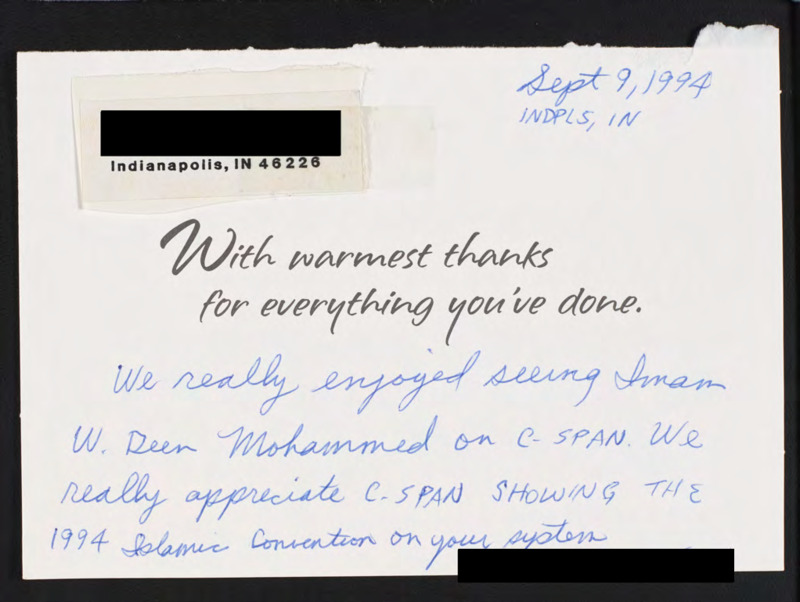 Sept 9, 1994
INDPLS, IN
Indianapolis, IN 46226
With warmest thanks
for everything you've done.
We really enjoyed seeing Imam
W. Deen Mohammed on C-SPAN. We
really appreciate C-SPAN SHOWING THE
1994 Islamic Convention on your system